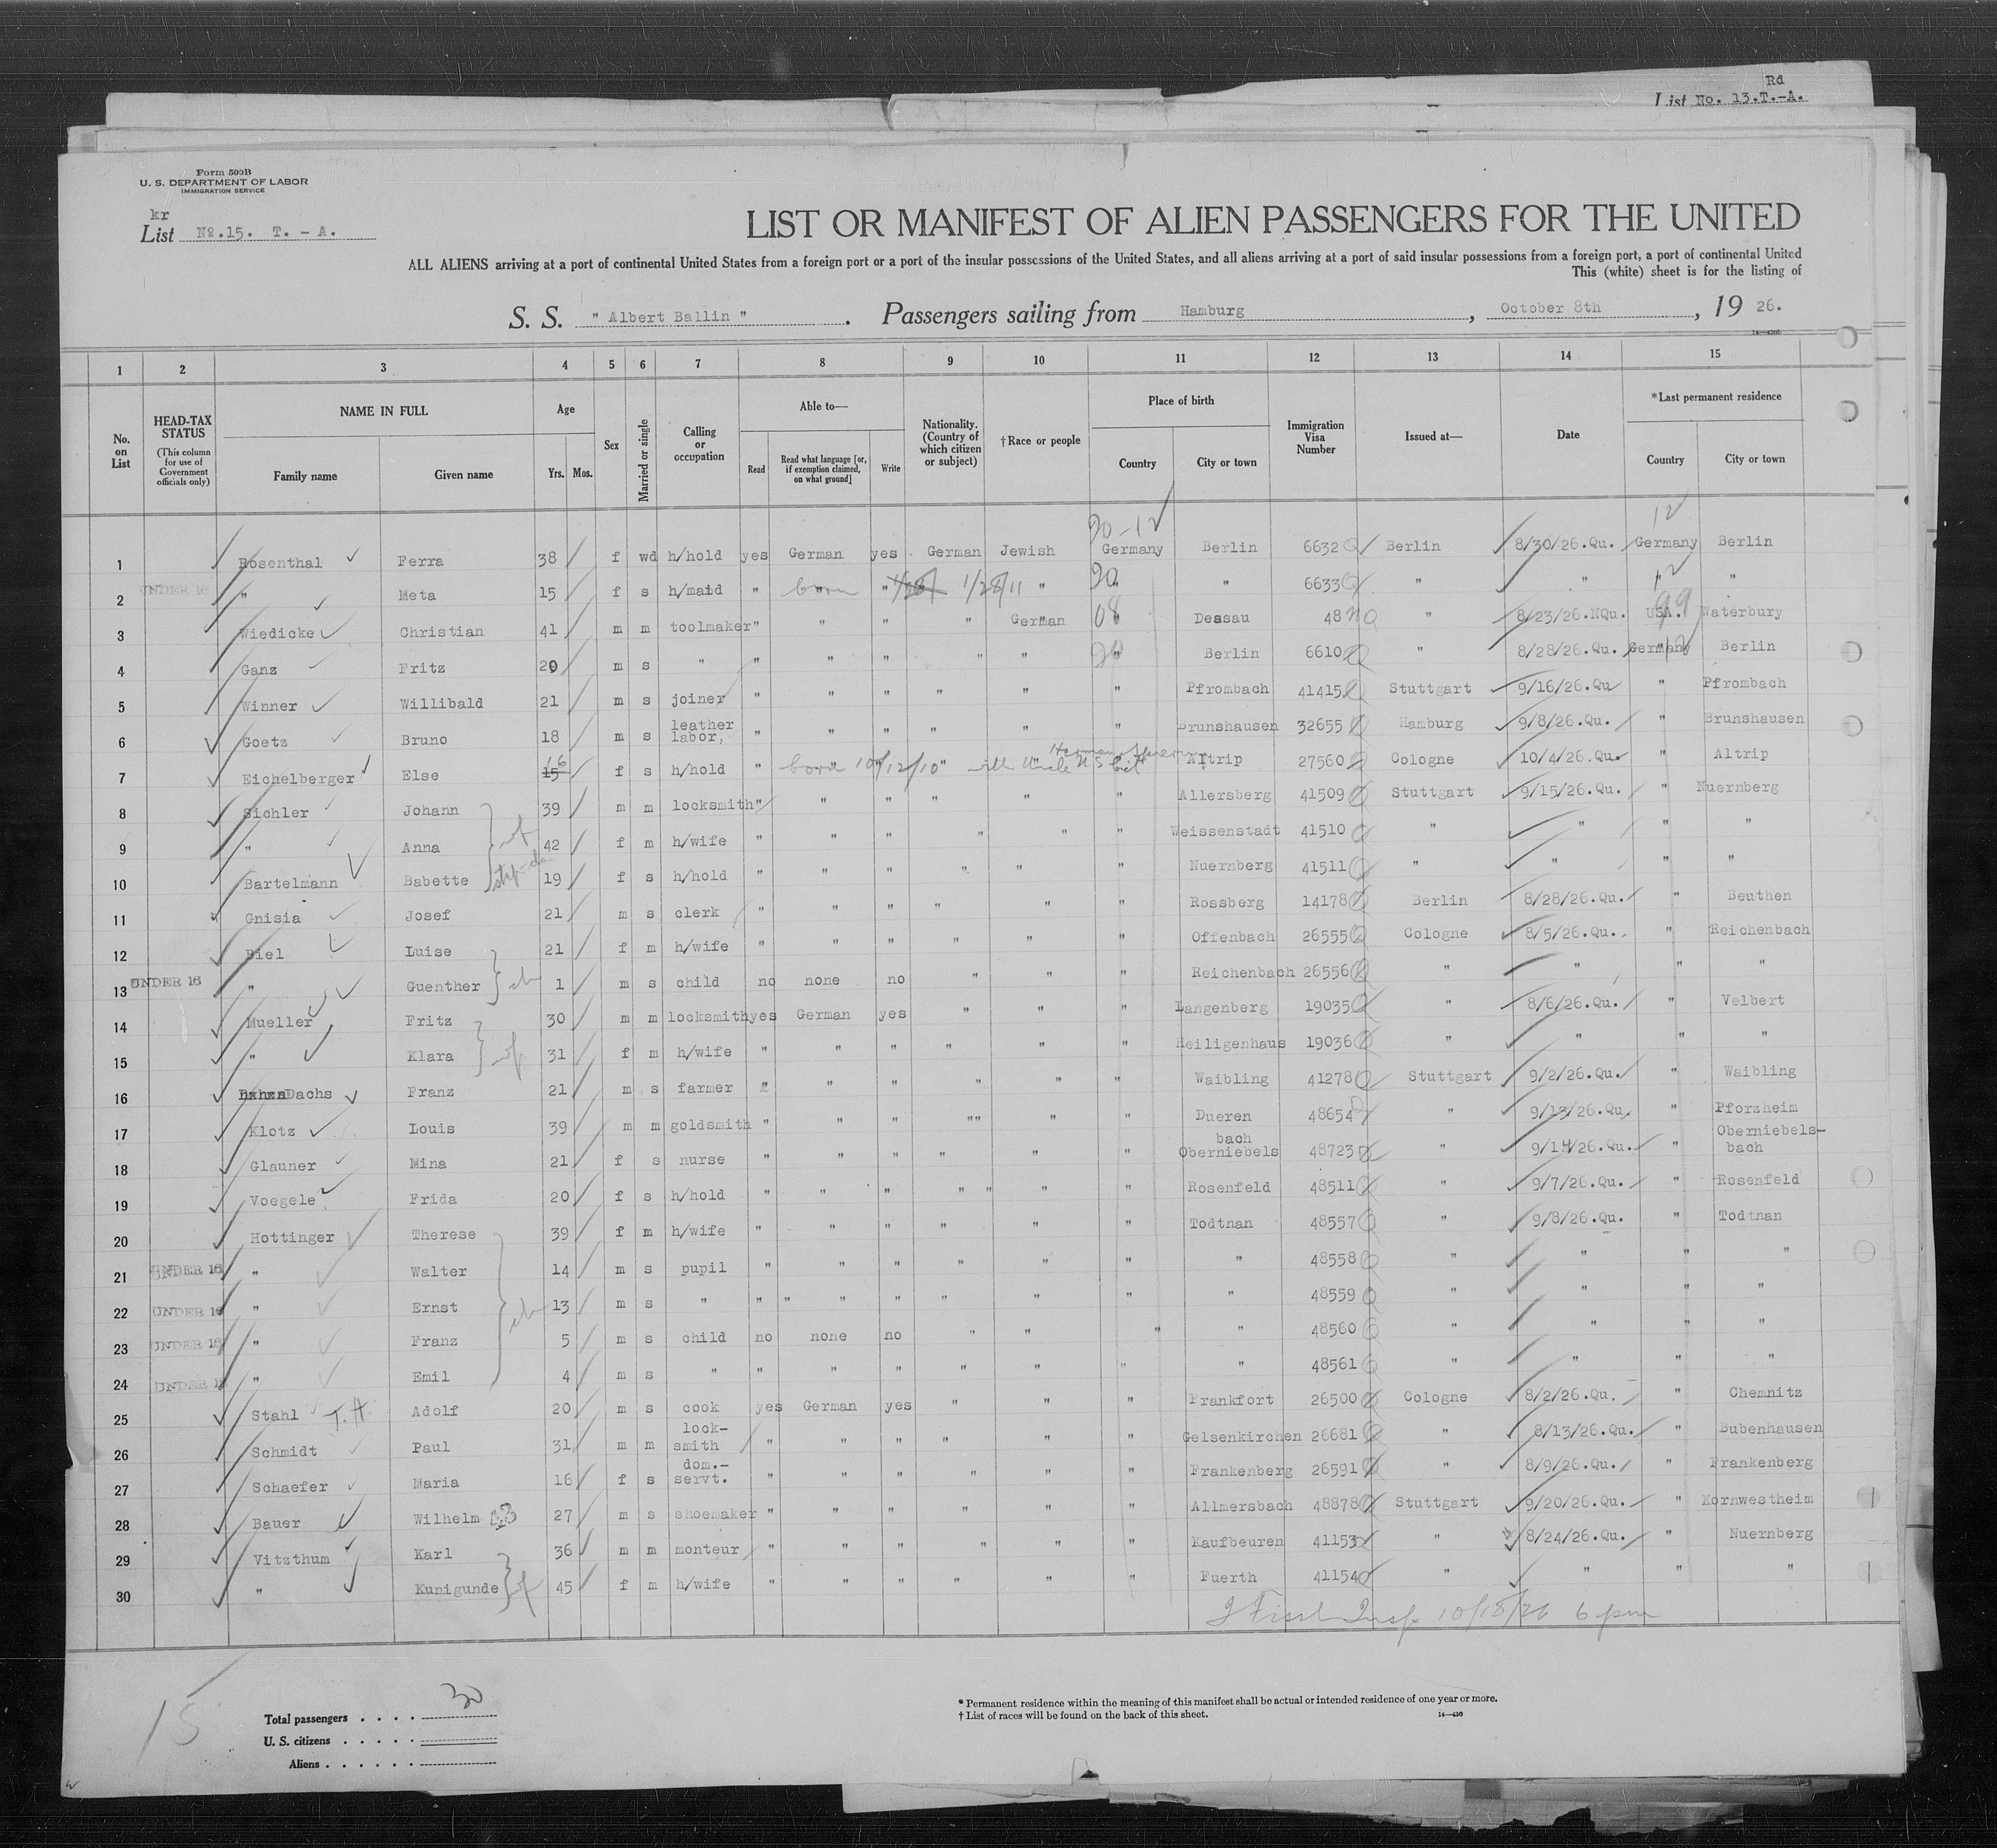 Rd
List No. 13.T.-A.
Form 500B
U. S. DEPARTMENT OF LABOR
IMMIGRATION SERVICE
kr
List No.15. T. - A.
LIST OR MANIFEST OF ALIEN PASSENGERS FOR THE UNITED
ALL ALIENS arriving at a port of continental United States from a foreign port or a port of the insular possessions of the United States, and all aliens arriving at a port of said insular possessions from a foreign port, a port of continental United
This (white) sheet is for the listing of
S. S. " Albert Ballin ". Passengers sailing from Hamburg, October 8th, 19 26.
1 2 3 4 5 6 7 8 9 10 11 12 13 14 15
No. on List
HEAD-TAX STATUS (This column for use of Government officials only)
NAME IN FULL Family name Given name
Age Yrs. Mos.
Sex
Married or single
Calling or occupation
Able to— Read Read what language [or, if exemption claimed, on what ground] Write
Nationality. (Country of which citizen or subject)
†Race or people
Place of birth Country City or town
Immigration Visa Number
Issued at—
Date
*Last permanent residence Country City or town
90-12 12
1 Rosenthal Ferra 38 f wd h/hold yes German yes German Jewish Germany Berlin 6632 Berlin 8/30/26.Qu. Germany Berlin
2 UNDER 16 " Meta 15 f s h/maid " born " 1/28/11 " 90 " " 6633 " " " "
3 Wiedicke Christian 41 m m toolmaker " " " " German 08 Dessau 48 " 8/23/26.NQu. USA. 99 Waterbury
4 Ganz Fritz 20 m s " " " " " " " Berlin 6610 " 8/28/26.Qu. Germany Berlin
5 Winner Willibald 21 m s joiner " " " " " " Pfrombach 41415 Stuttgart 9/16/26.Qu " Pfrombach
6 Goetz Bruno 18 m s leather labor, " " " " " " Brunshausen 32655 Hamburg 9/8/26.Qu. " Brunshausen
7 Eichelberger Else 15 16 f s h/hold " born 10/12/10 " with Uncle US cit Herman " Altrip 27560 Cologne 10/4/26.Qu. " Altrip
8 Sichler Johann 39 m m locksmith " " " " " " Allersberg 41509 Stuttgart 9/15/26.Qu. " Nuernberg
9 " Anna wf 42 f m h/wife " " " " " " Weissenstadt 41510 " " " "
10 Bartelmann Babette step-da 19 f s h/hold " " " " " " Nuernberg 41511 " " " "
11 Gnisia Josef 21 m s clerk " " " " " " Rossberg 14178 Berlin 8/28/26.Qu. " Beuthen
12 Biel Luise 21 f m h/wife " " " " " " Offenbach 26555 Cologne 8/5/26.Qu. " Reichenbach
13 UNDER 16 " Guenther ch 1 m s child no none no " " " Reichenbach 26556 " " " "
14 Mueller Fritz 30 m m locksmith yes German yes " " " Langenberg 19035 " 8/6/26.Qu. " Velbert
15 " Klara wf 31 f m h/wife " " " " " " Heiligenhaus 19036 " " " "
16 Dachs Franz 21 m s farmer " " " " " " Waibling 41278 Stuttgart 9/2/26.Qu. " Waibling
17 Klotz Louis 39 m m goldsmith " " " "" " " Dueren 48654 " 9/13/26.Qu. " Pforzheim
18 Glauner Mina 21 f s nurse " " " " " " bach Oberniebels 48723 " 9/14/26.Qu. " Oberniebels-bach
19 Voegele Frida 20 f s h/hold " " " " " " " Rosenfeld 48511 " 9/7/26.Qu. " Rosenfeld
20 Hottinger Therese 39 f m h/wife " " " " " " Todtnan 48557 " 9/8/26.Qu. " Todtnan
21 UNDER 16 " Walter 14 m s pupil " " " " " " " 48558 " " " "
22 UNDER 16 " Ernst ch 13 m s " " " " " " " " " 48559 " " " "
23 UNDER 16 " Franz 5 m s child no none no " " " " 48560 " " " "
24 UNDER 16 " Emil 4 m s " " " " " " " " 48561 " " " "
25 Stahl T.A. Adolf 20 m s cook yes German yes " " " Frankfort 26500 Cologne 8/2/26.Qu. " Chemnitz
26 Schmidt Paul 31 m m lock-smith " " " " " " Gelsenkirchen 26681 " 8/13/26.Qu. " Bubenhausen
27 Schaefer Maria 16 f s dom.-servt. " " " " " " Frankenberg 26591 " 8/9/26.Qu. " Frankenberg
28 Bauer Wilhelm 27 m s shoemaker " " " " " " Allmersbach 48878 Stuttgart 9/20/26.Qu. " Kornwestheim
29 Vitzthum Karl 36 m m monteur " " " " " " Kaufbeuren 41153 " 8/24/26.Qu. " Nuernberg
30 " Kunigunde wf 45 f m h/wife " " " " " " Fuerth 41154 " " " "
Insp. 10/18/26 6 pm
15
Total passengers . . . . 30
U. S. citizens . . . . .
Aliens . . . . . .
* Permanent residence within the meaning of this manifest shall be actual or intended residence of one year or more.
† List of races will be found on the back of this sheet.
14—430